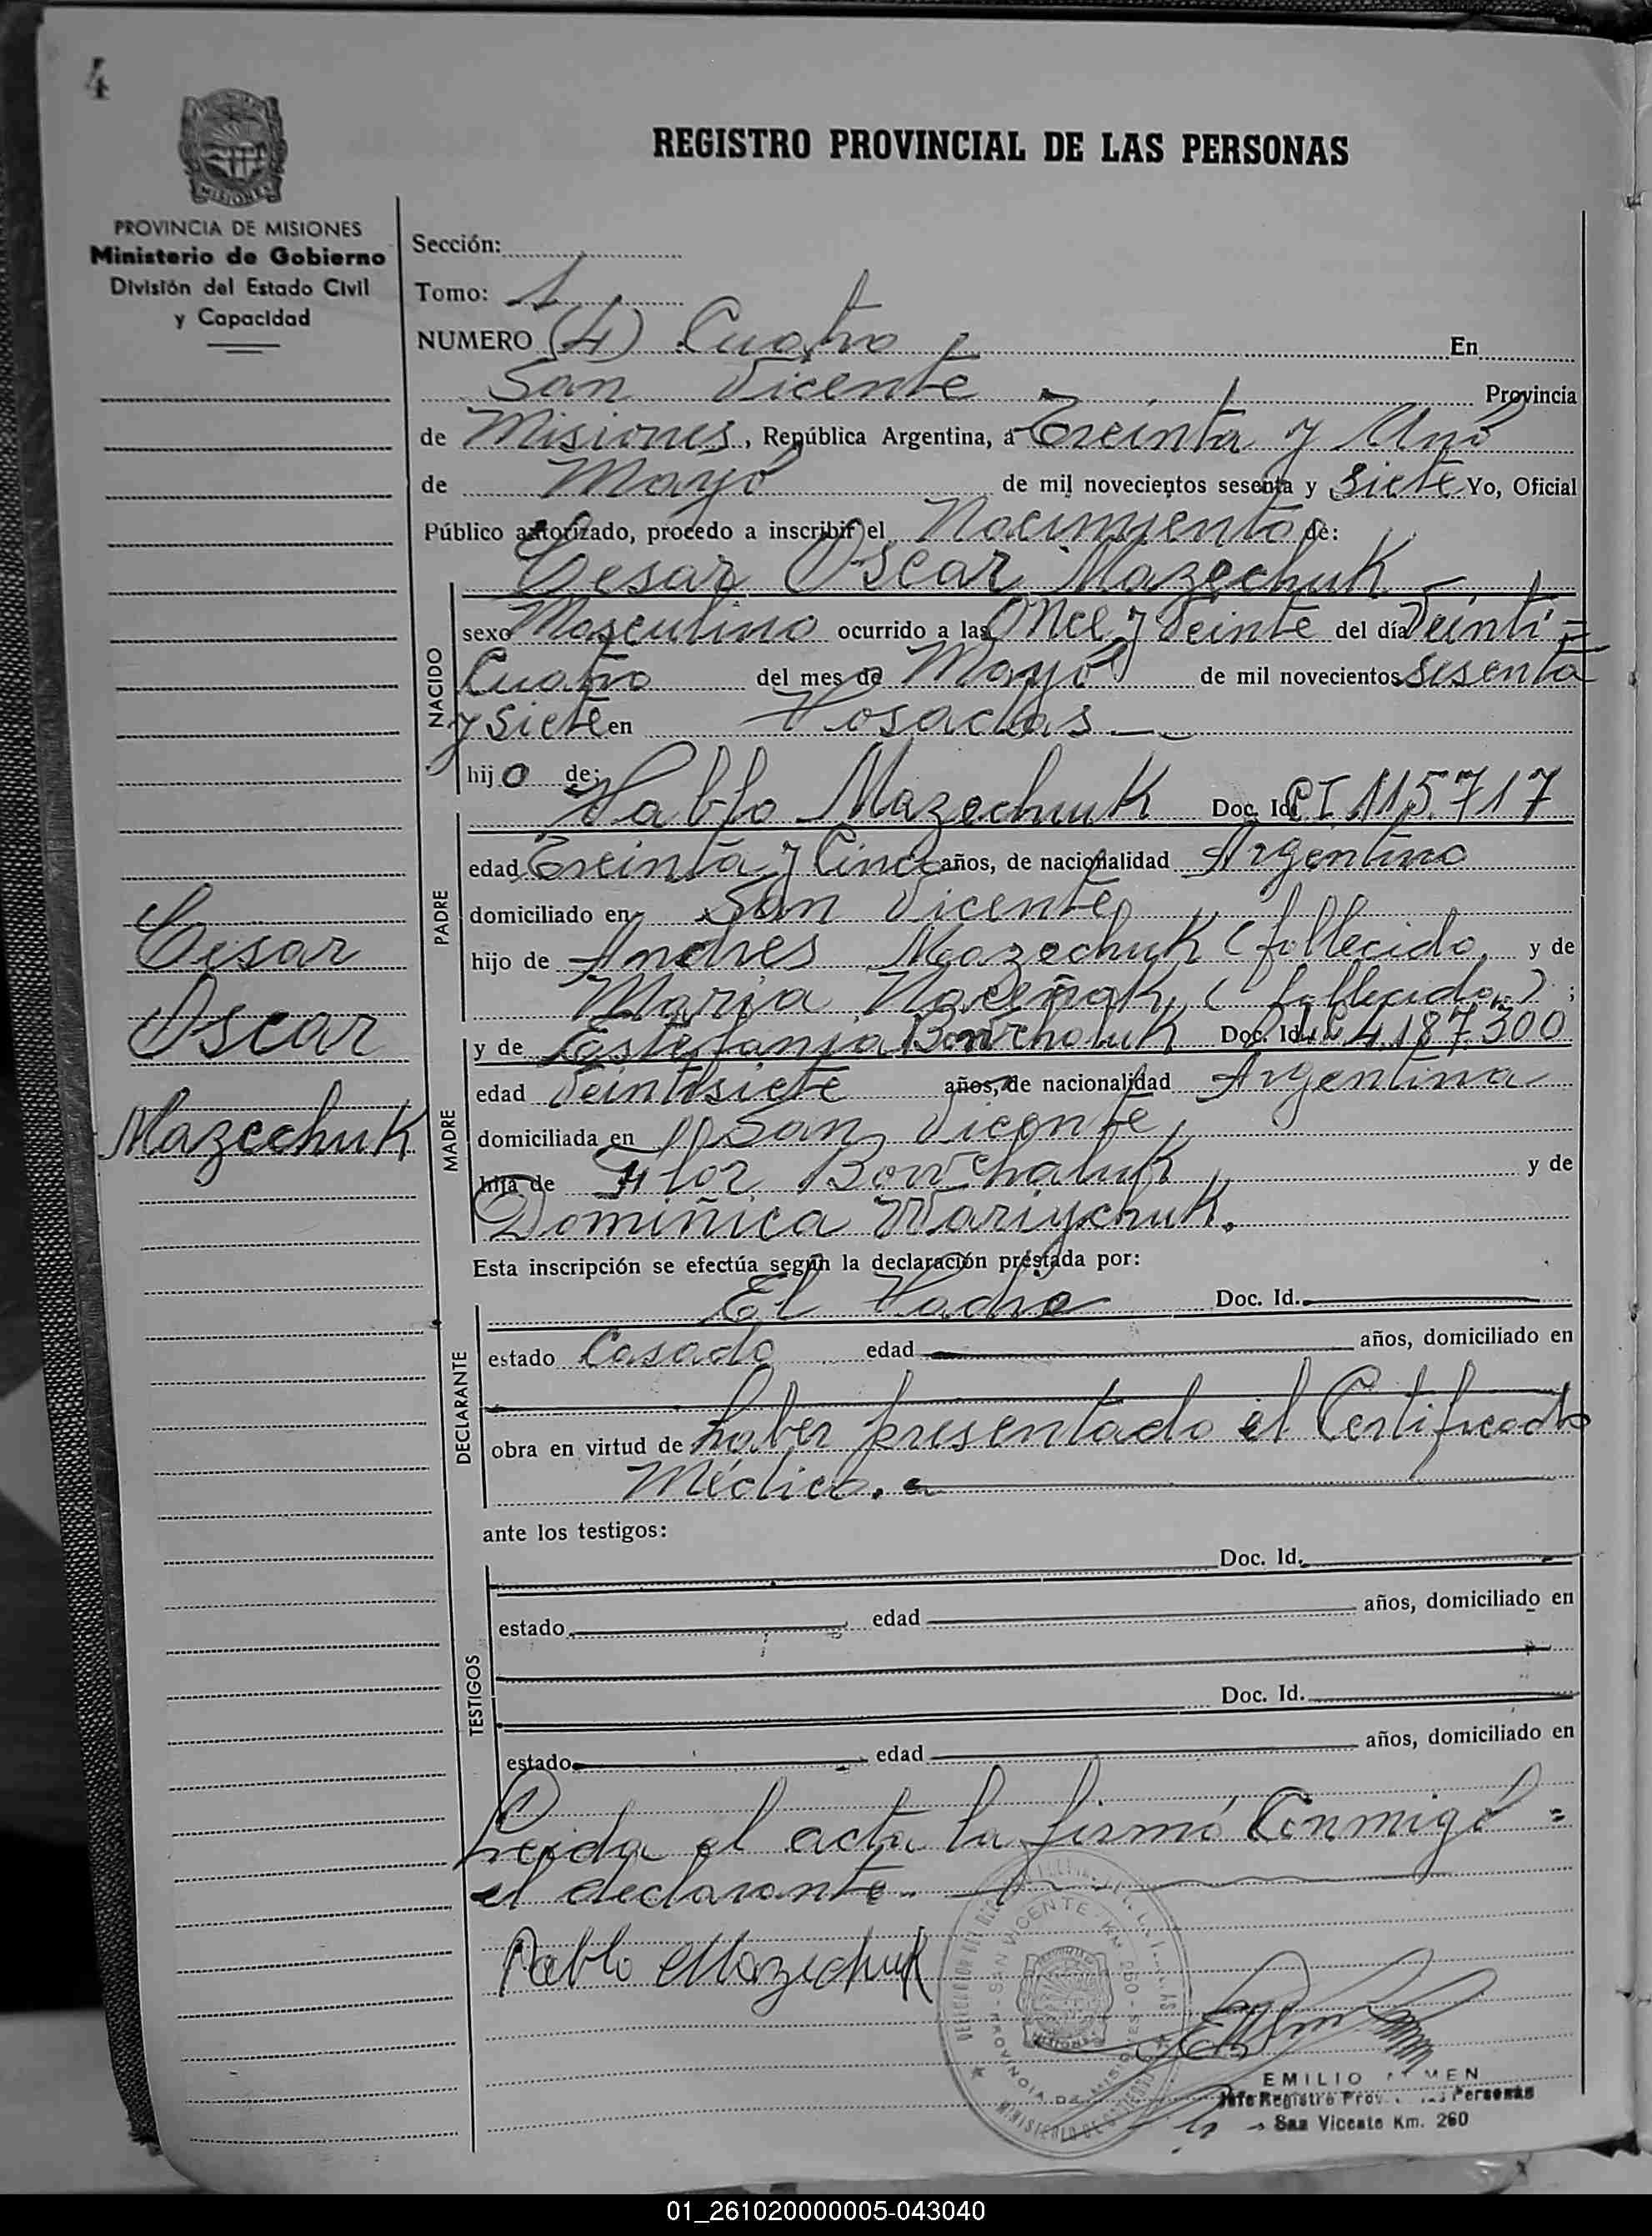 4
REGISTRO PROVINCIAL DE LAS PERSONAS
MISIONES
PROVINCIA DE MISIONES
Ministerio de Gobierno
División del Estado Civil
y Capacidad
Sección:
Tomo: 1
NUMERO (4) Cuatro En
San Vicente Provincia
de Misiones, República Argentina, a Treinta y Uno
de Mayo de mil novecientos sesenta y siete Yo, Oficial
Público autorizado, procedo a inscribir el Nacimiento de:
Cesar Oscar Mazechuk
NACIDO
sexo Masculino ocurrido a las Once y Veinte del día Veinti=
Cuatro del mes de Mayo de mil novecientos sesenta
y siete en Posadas
hijo de:
PADRE
Pablo Mazechuk Doc. Id. CI 115.717
edad Treinta y Cinco años, de nacionalidad Argentino
domiciliado en San Vicente
hijo de Andres Mazechuk (fallecido, y de
Maria (fallecida);
MADRE
y de Estefania Doc. Id. 4.187.300
edad Veintisiete años, de nacionalidad Argentina
domiciliada en San Vicente,
hija de Flor y de
Dominica
Cesar
Oscar
Mazechuk
Esta inscripción se efectúa según la declaración prestada por:
DECLARANTE
El Padre Doc. Id.
estado Casado edad años, domiciliado en
obra en virtud de haber presentado el Certificado
Médico.
ante los testigos:
TESTIGOS
Doc. Id.
estado edad años, domiciliado en
Doc. Id.
estado edad años, domiciliado en
Leida el acta la firmó Conmigo =
el declarante.
Pablo Mazechuk
SAN VICENTE - KM 260 - PROVINCIA DE MISIONES
MINISTERIO DE GOBIERNO
EMILIO
Jefe Registro Prov. Personas
San Vicente Km. 260
01_261020000005-043040